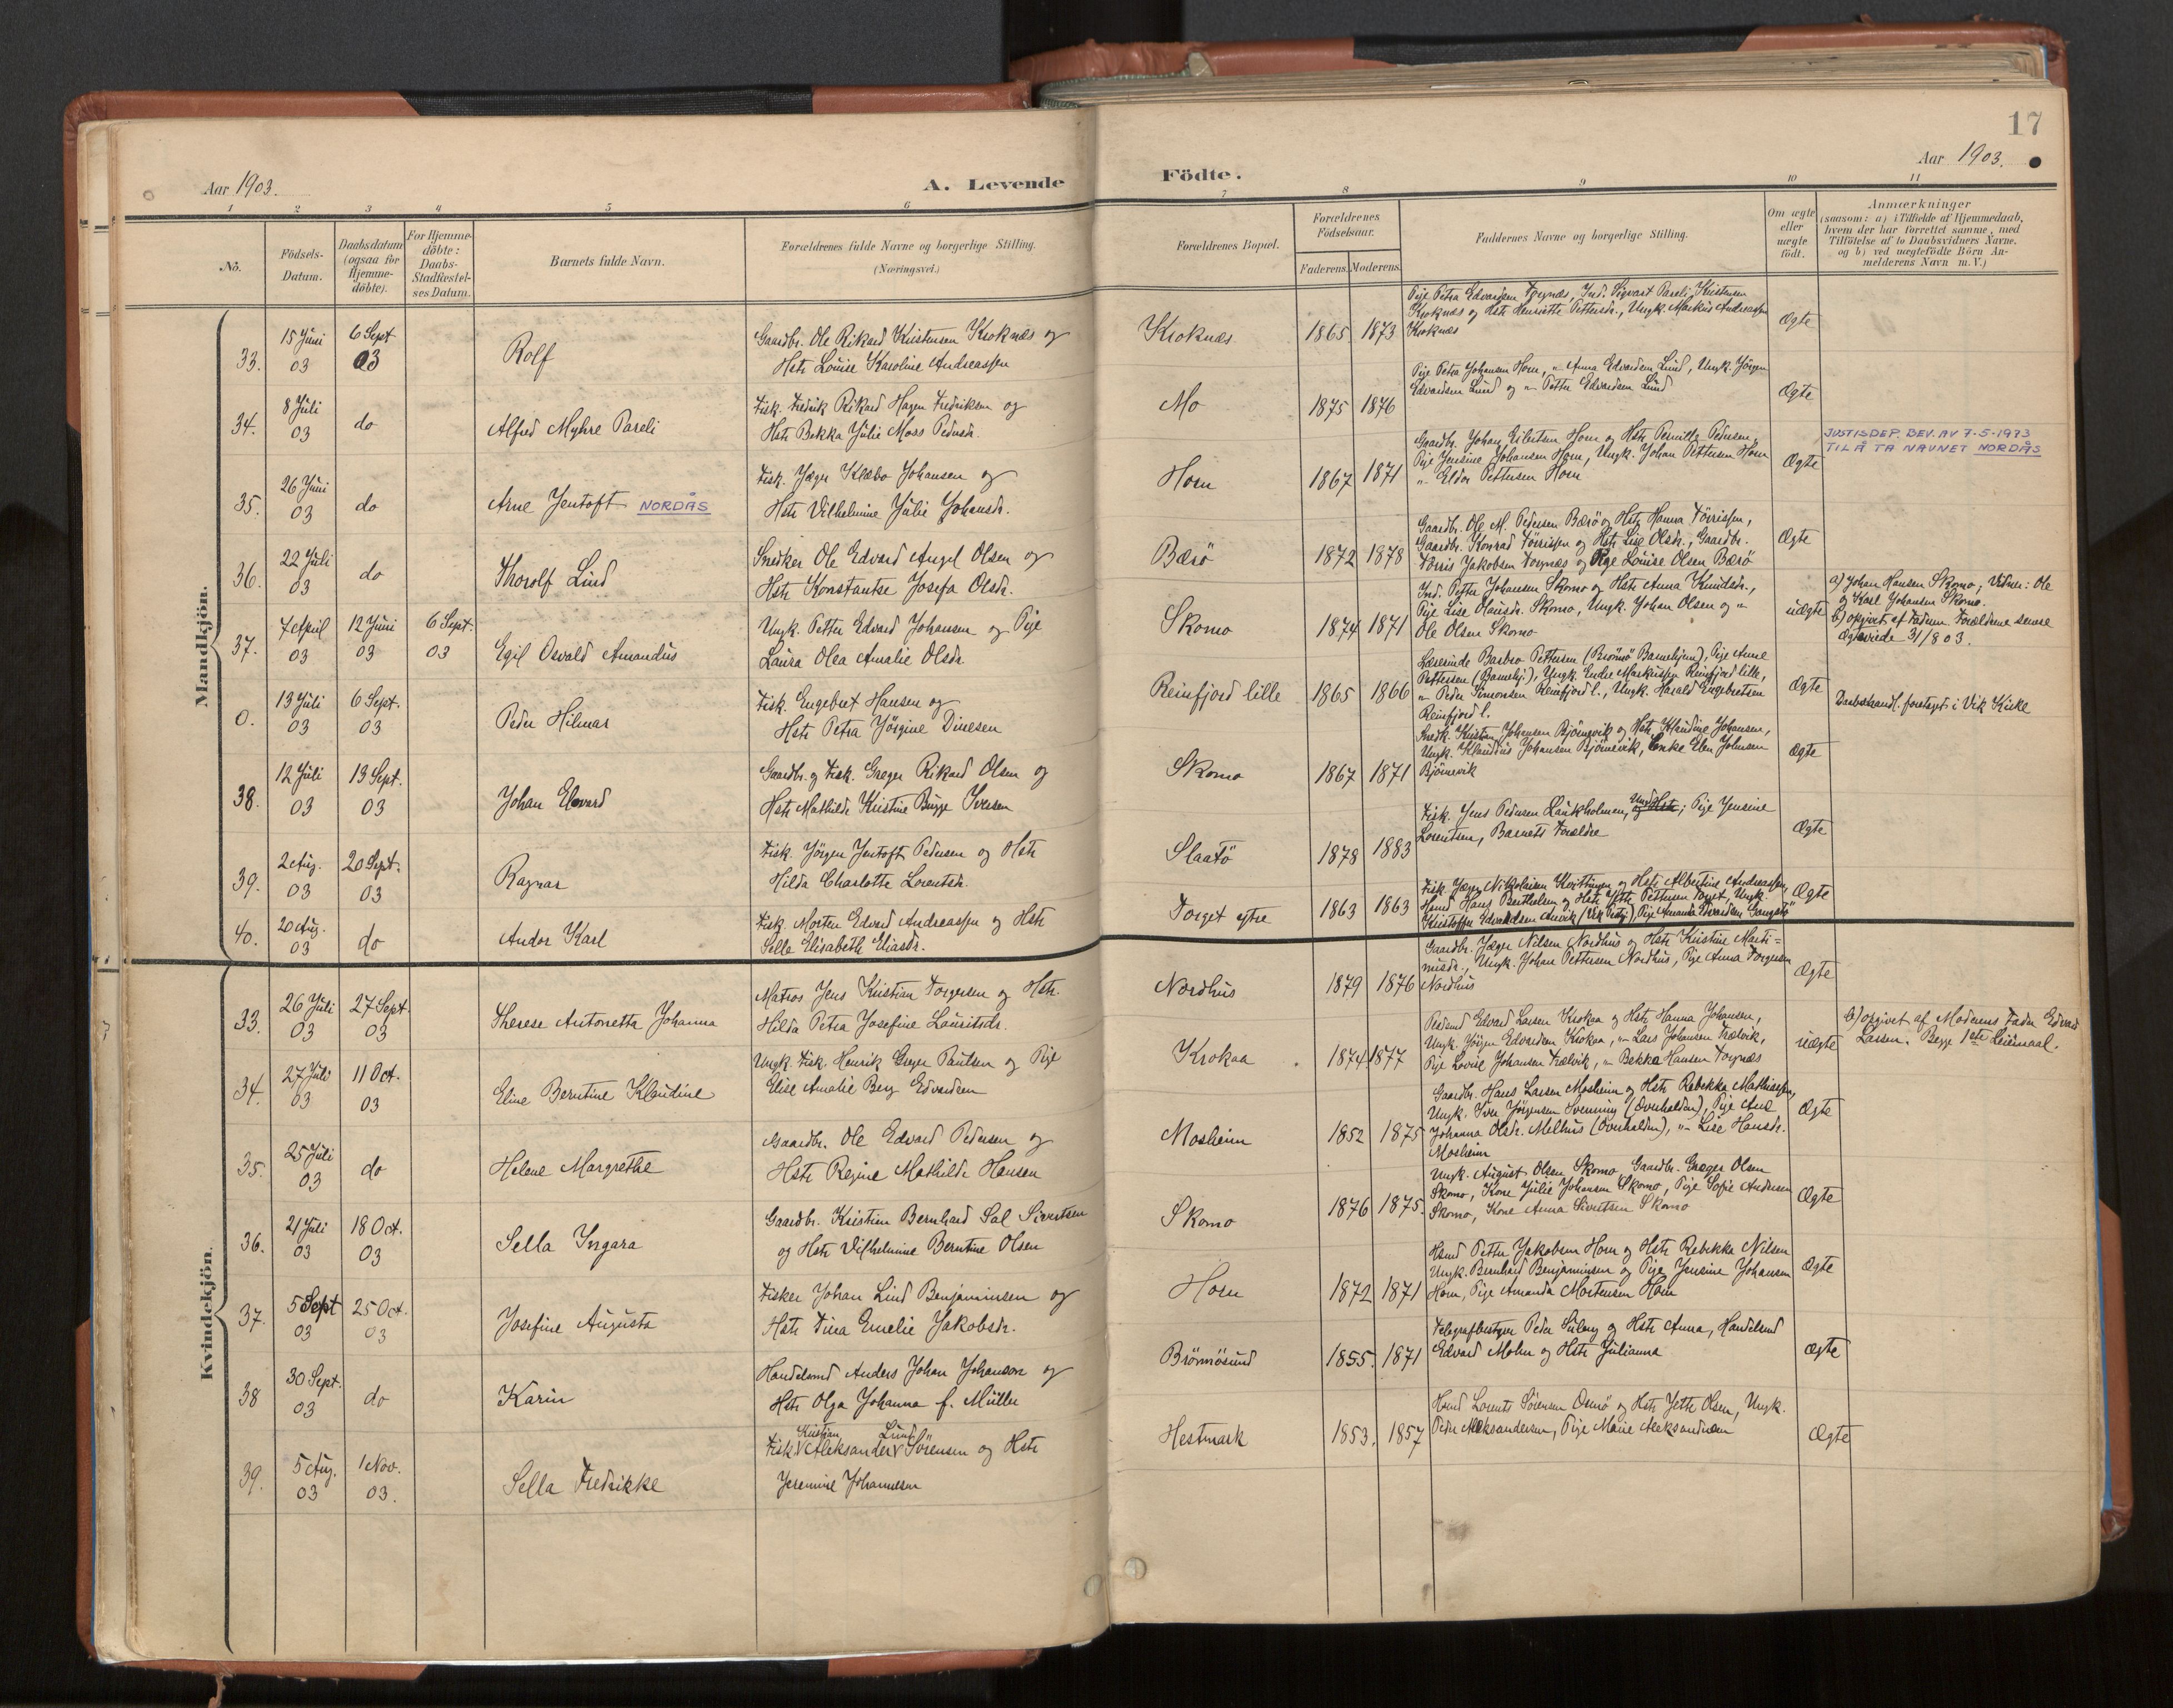 17
Aar 1903.
A. Levende
Födte.
Aar 1903.
1 2 3 4 5 6 7 8 9 10 11
No.
Födsels-
Datum.
Daabsdatum
(ogsaa for
Hjemme-
döbte).
For Hjemme-
döbte:
Daabs-
Stadfæstel-
ses Datum.
Barnets fulde Navn.
Forældrenes fulde Navne og borgerlige Stilling.
(Næringsvei.)
Forældrenes Bopæl.
Forældrenes
Födselsaar.
Faderens. Moderens.
Faddernes Navne og borgerlige Stilling.
Om ægte
eller
uægte
født.
Anmærkninger
(saasom: a) i Tilfælde af Hjemmedaab,
hvem der har forrettet samme, med
Tilføielse af to Daabsvidners Navne.
og b) ved uægtefödte Börn An-
melderens Navn m. V.)
Mandkjön.
33.
15 Juni
03
6 Sept
03
Rolf
Gaardbr. Ole Rikard Kristensen Kroknæs og
Hstr Louise Karoline Andreassen
Kroknæs
1865 1873
Pige Petra Edvardsen Torgnæs, Ind. Sigvart Pareli Kristensen
Kroknæs og Hstr Henriette Pettersdr., Ungk. Markus Andreassen
Kroknæs
Ægte
34.
8 Juli
03
do
Alfred Myhre Pareli
Fisk. Fredrik Rikard Hagen Fredriksen og
Hstr Bekka Julie Moss Pedersdr.
Mo
1875 1876
Pige Petra Johansen Horn, " Anna Edvardsen Lund, Ungk. Jörgen
Edvardsen Lund og " Petter Edvardsen Lund
Ægte
35.
26 Juni
03
do
Arne Jentoft NORDÅS
Fisk. Jæger Klæbo Johansen og
Hstr Vilhelmine Julie Johansdr.
Horn
1867 1871
Gaardbr. Johan Eilertsen Horn og Hstr Pernille Pedersen,
Pige Jensine Johansen Horn, Ungk. Johan Pettersen Horn
" Eldor Pettersen Horn
Ægte
JUSTISDEP. BEV. AV 7-5-1973
TIL Å TA NAVNET NORDÅS
36.
22 Juli
03
do
Thorolf Lind
Snedker Ole Edvard Angel Olsen og
Hstr Konstantse Josefa Olsdr.
Bærö
1872 1878
Gaardbr. Ole M. Pedersen Bærö og Hstr Hanna Törrissen,
Gaardbr. Konrad Törrissen og Hstr Lise Olsdr., Gaardbr.
Törris Jakobsen Torgnæs og Pige Louise Olsen Bærö
Ægte
37.
7 April
03
12 Juni
03
6 Sept.
03
Egil Osvald Amandus
Ungk. Petter Edvard Johansen og Pige
Laura Olea Amalie Olsdr.
Skomo
1874 1871
Ind. Petter Johansen Skomo og Hstr Anna Knudsdr.,
Pige Lise Hansdr. Skomo, Ungk. Johan Olsen og "
Ole Olsen Skomo
uægte
a) Johan Hansen Skomo; Vidner: Ole
og Karl Johansen Skomo.
b) opgivet af Faderen. Forældrene senere
Ægteviede 31/8 03.
0.
13 Juli
03
6 Sept.
03
Peder Hilmar
Fisk. Engebret Hansen og
Hstr Petra Jörgine Dinesen
Reinfjord lille
1865 1866
Lærerinde Barbro Pettersen (Brönnö Barnehjem), Pige Anne
Pettersen (Barnehj.), Ungk. Endre Markussen Reinfjord lille,
" Peder Simonsen Reinfjord l., Ungk. Harald Engebretsen
Reinfjord l.
Ægte
Daabshandl. foretaget i Vik Kirke
38.
12 Juli
03
13 Sept.
03
Johan Edvard
Gaardbr. og Fisk. Greger Rikard Olsen og
Hstr Mathilde Kristine Bugge Iversen
Skomo
1867 1871
Snedk. Kristen Johansen Björnevik og Hstr Klaudine Johansen,
Ungk. Klaudius Johansen Björnevik, Enke Elen Johnsen
Björnevik
Ægte
39.
2 Aug.
03
20 Sept.
03
Ragnar
Fisk. Jörgen Jentoft Pedersen og Hstr
Hilda Charlotte Lorentsdr.
Slaatö
1878 1883
Fisk. Jens Pedersen Laukholmen, og Hstr; Pige Jensine
Lorentsen, Barnets Forældre
Ægte
40.
20 Aug.
03
do
Andor Karl
Fisk. Morten Edvard Andreassen og Hstr
Sella Elisabeth Eliasdr.
Torget ytre
1863 1863
Fisk. Jæger Nikolaisen Kvittingen og Hstr Albertine Andreassen,
Hmd Hans Berthelsen og Hstr Jette Pettersen Torget, Ungk.
Kristoffer Edvardsen Arvik (Vik Prstgj.), Pige Amanda Edvardsen
Ægte
Kvindekjön.
33.
26 Juli
03
27 Sept.
03
Therese Antonetta Johanna
Matros Jens Kristian Torgersen og Hstr.
Hilda Petra Josefine Lauritsdr.
Nordhus
1879 1876
Gaardbr. Jæger Nilsen Nordhus og Hstr Kristine Marti-
nusdr., Ungk. Johan Pettersen Nordhus, Pige Anna Torgersen
Nordhus
Ægte
34.
27 Juli
03
11 Oct.
03
Eline Berntine Klaudine
Ungk. Fisk. Henrik Greger Paulsen og Pige
Elise Amalie Berg Edvardsen
Krokaa
1874 1877
Pedsmd Edvard Larsen Krokaa og Hstr Hanna Johansen,
Ungk. Jörgen Edvardsen Krokaa, " Lars Johansen Trælvik,
Pige Lovise Johansen Trælvik, " Bekka Hansen Torgnæs
uægte
b) opgivet af Moderens Fader Edvard
Lassen. Begge 1ste Leiermaal.
35.
25 Juli
03
do
Helene Margrethe
Gaardbr. Ole Edvard Pedersen og
Hstr Regine Mathilde Hansen
Mosheim
1852 1875
Gaardbr. Hans Larsen Mosheim og Hstr Rebekka Mathiassen,
Ungk. Iver Jörgensen Svenning (Overhalden), Pige Ane
Johanna Olsdr. Melhus (Overhalden), " Lise Hansdr.
Mosheim
Ægte
36.
21 Juli
03
18 Oct.
03
Sella Yngara
Gaardbr. Kristian Bernhard Sal Sivertsen
og Hstr Vilhelmine Berntine Olsen
Skomo
1876 1875.
Ungk. August Olsen Skomo Gaardbr. Greger Olsen
Skomo, Kone Julie Johansen Skomo, Pige Sofie Andersen
Skomo, Kone Anna Sivertsen Skomo
Ægte
37.
5 Sept
03
25 Oct.
03
Josefine Augusta
Fisker Johan Lind Benjaminsen og
Hstr Tina Emelie Jakobsdr.
Horn
1872 1871
Hsmd Petter Jakobsen Horn og Hstr Rebekka Nilsen
Ungk. Bernhard Benjaminsen og Pige Jensine Johansen
Horn, Pige Amanda Mortensen Horn
Ægte
38
30 Sept.
03
do
Karin
Handelsmd Anders Johan Johanson og
Hstr Olga Johanna f. Müller
Brönnösund
1855. 1871
Telegrafbestyrer Peder Suleng og Hstr Anna, Handelsmd
Edvard Mohn og Hstr Julianna
Ægte
39.
5 Aug.
03
1 Nov.
03.
Sella Fredrikke
Kristian Lund
Fisk. Aleksander Sörensen og Hstr
Jeremine Johannesen
Hestmark
1853. 1857
Hsmd Lorents Sörensen Osmö og Hstr Jette Olsen, Ungk.
Peder Aleksandersen, Pige Marie Aleksandersen
Ægte